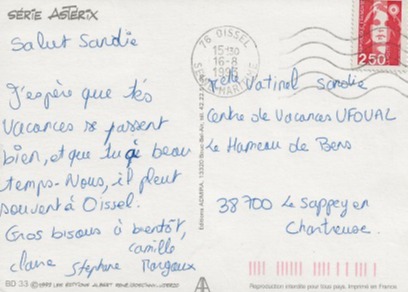 SÉRIE ASTÉRIX
Salut Sandie
J'espère que tes
vacances se passent
bien, et que tu a beau
temps. Nous, il pleut
souvent à Oissel.
Gros bisous à bientôt,
Camille
Claire Stephane Margaux
BD 33 © 1993 LES EDITIONS ALBERT RENÉ, GOSCINNY-UDERZO
Editions ADMIRA, 13320 Bouc-Bel-Air, tél. 42.22.
76 OISSEL
15H30
16-8
SEINE MARITIME
2,50
Vatinel Sandie
Centre de Vacances UFOVAL
Le Hameau de Bens
38700 Le Sappey en
Chartreuse.
Reproduction interdite pour tous pays. Imprimé en France.